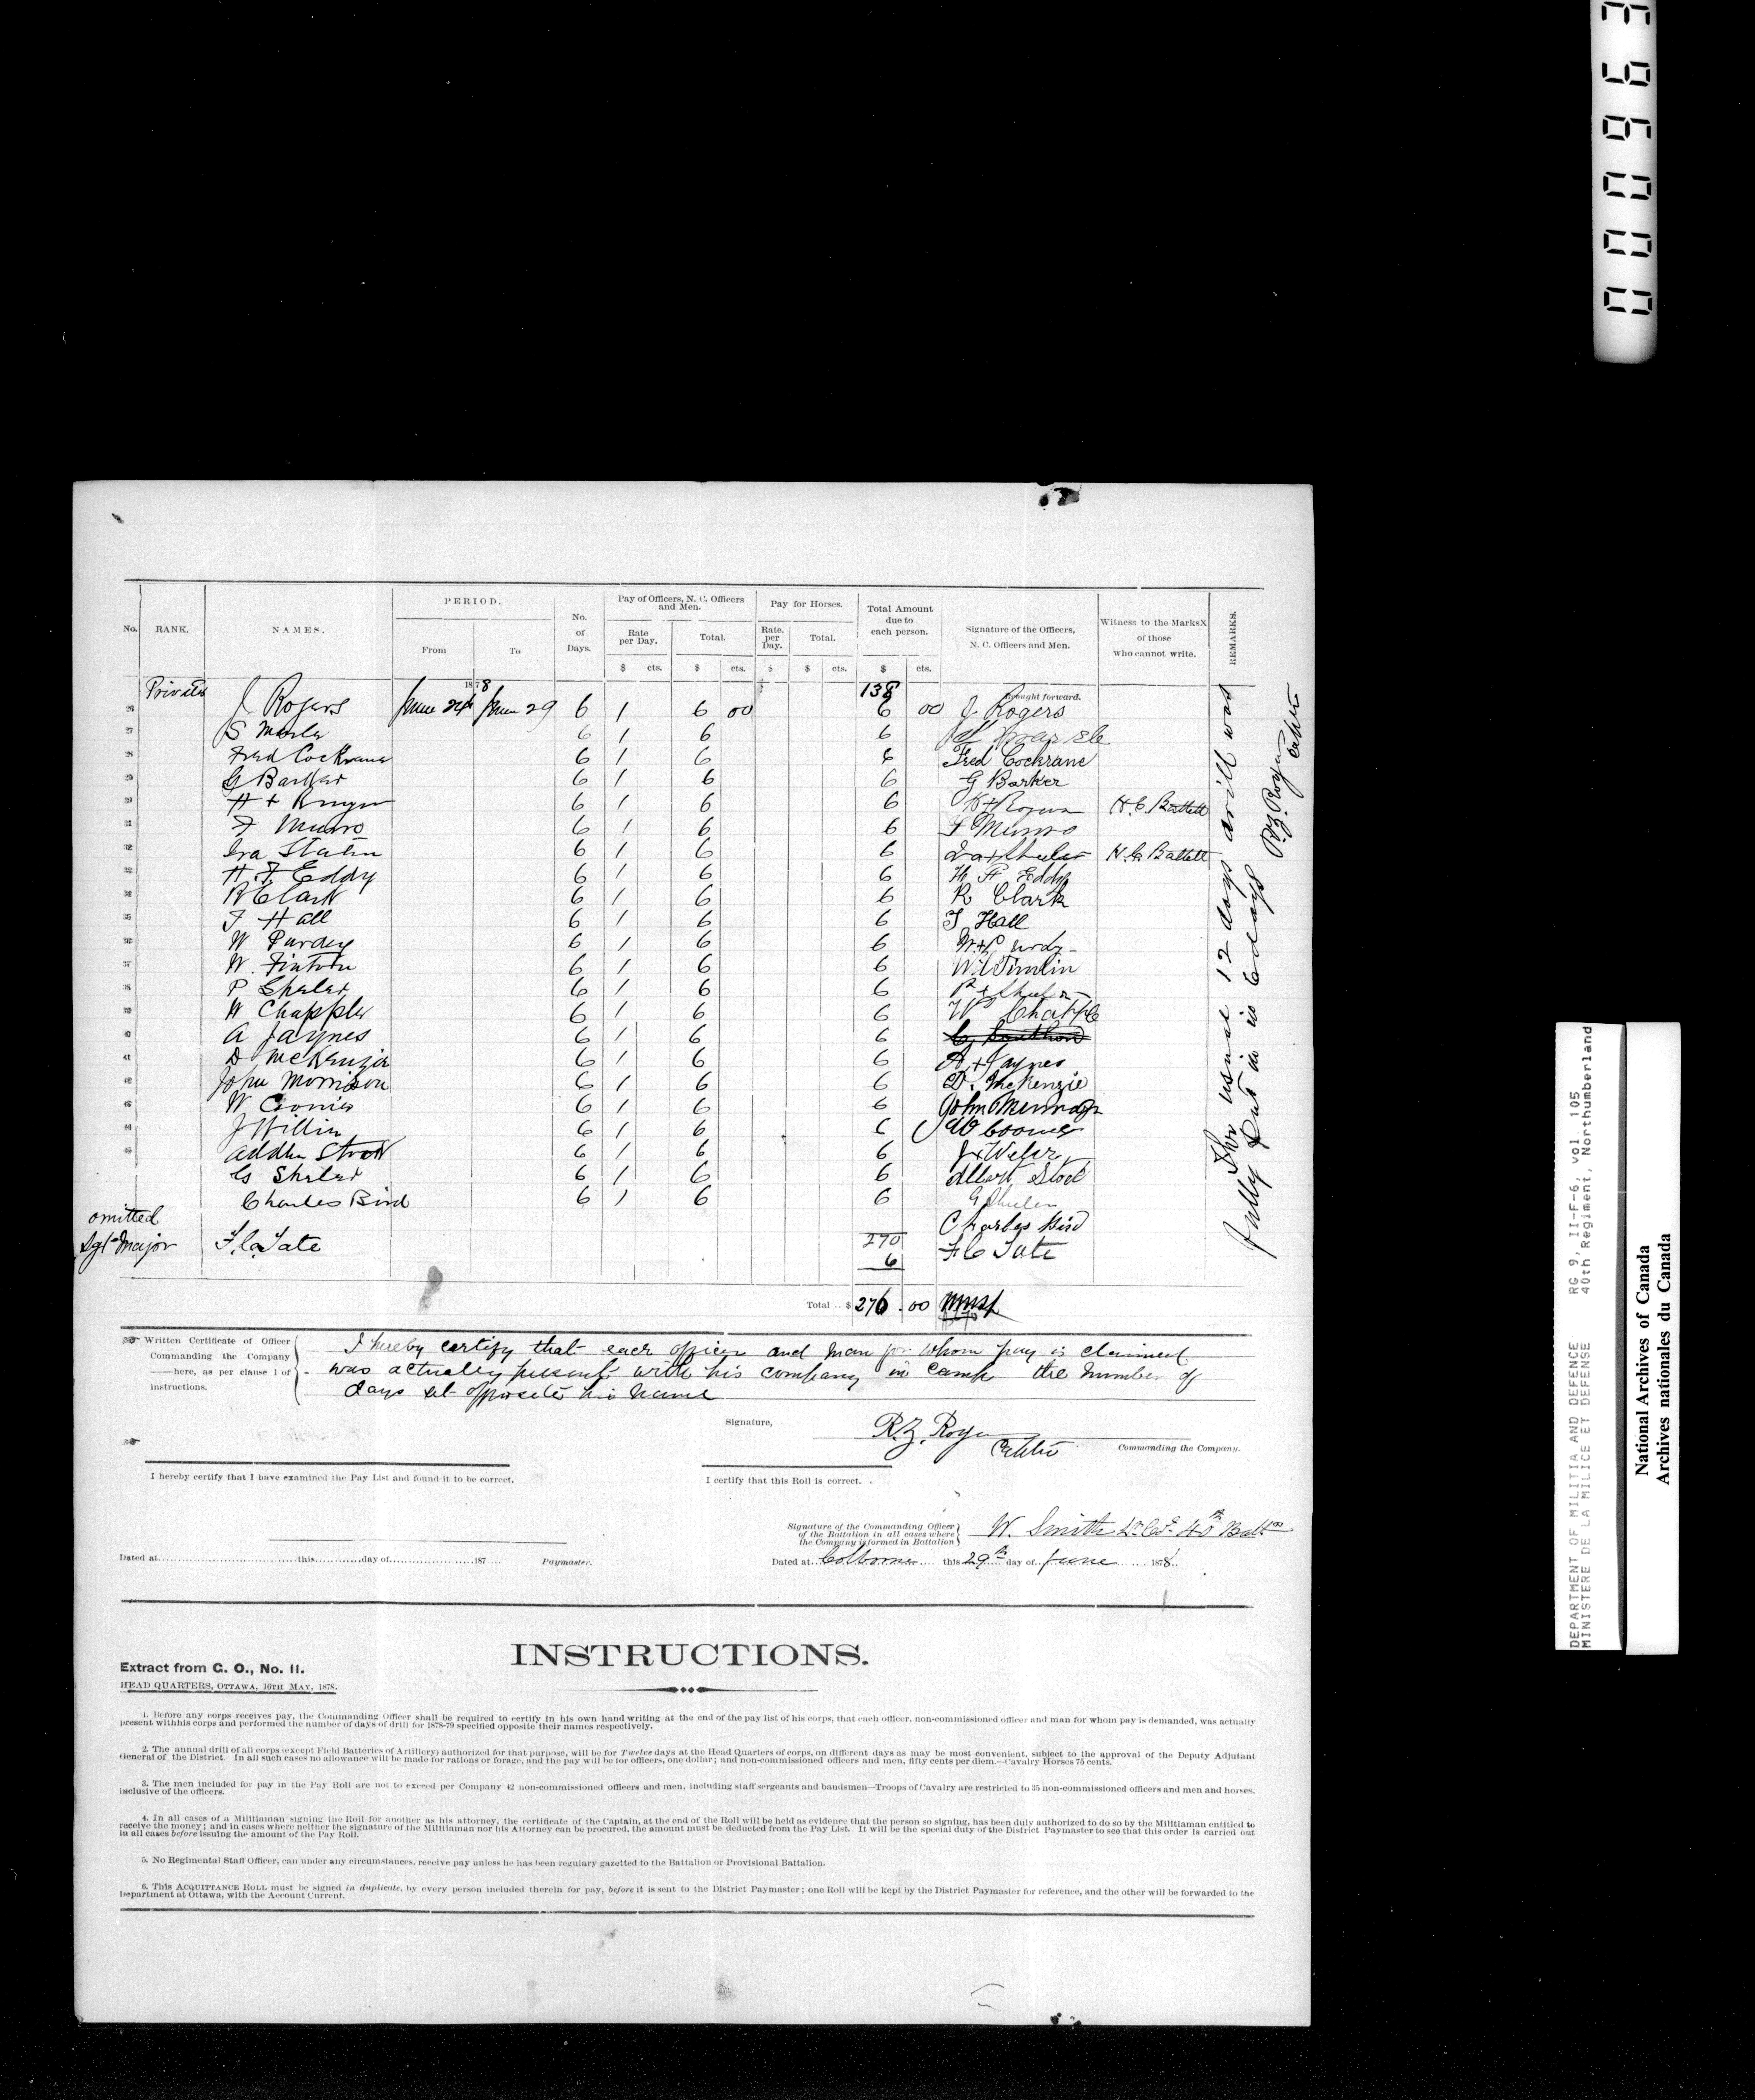 000963
No. RANK. NAMES. PERIOD. From To No. of Days. Pay of Officers, N. C. Officers and Men. Rate per Day. Total. Pay for Horses. Rate. per Day. Total. Total Amount due to each person. Signature of the Officers, N. C. Officers and Men. Witness to the MarksX of those who cannot write. REMARKS.
$ cts. $ cts. $ $ cts. $ cts.
1878 138 Brought forward.
26 Private J Rogers June 24th June 29 6 1 6 00 6 00 J. Rogers
27 S 6 1 6 6
28 Fred Cockrane 6 1 6 6 Fred Cochrane
29 G Barker 6 1 6 6 G Barker
30 H + 6 1 6 6 H + H. C. Bartlett
31 F Munro 6 1 6 6 F Munro
32 Ira 6 1 6 6 Ira + H. C. Bartlett
33 H. F. Eddy 6 1 6 6 H F Eddy
34 R Clark 6 1 6 6 R Clark
35 T Hall 6 1 6 6 T Hall
36 W Purdy 6 1 6 6 W + Purdy
37 W. 6 1 6 6
38 P 6 1 6 6 P +
39 W Chapple 6 1 6 6 W Chapple
40 A Jaynes 6 1 6 6
41 D McKenzie 6 1 6 6 A + Jaynes
42 John Morrison 6 1 6 6 D. McKenzie
43 W 6 1 6 6 John
44 J 6 1 6 6 W
45 6 1 6 6 J +
G 6 1 6 6 Albert
Charles Bird 6 1 6 6 G
omitted Charles Bird
Sgt Major F. C. Tate 270 F C Tate
6
Total .. $ 276 . 00
The usual 12 days drill was
fully put in in 6 days R.Z. Rogers
Written Certificate of Officer Commanding the Company ——here, as per clause 1 of instructions.
I hereby certify that each officer and man for whom pay is claimed
was actually present with his company in camp the number of
days set opposite his name
Signature, R.Z. Rogers
Commanding the Company.
I hereby certify that I have examined the Pay List and found it to be correct.
I certify that this Roll is correct.
Signature of the Commanding Officer of the Battalion in all cases where the Company is formed in Battalion W. Smith Lt Col 40th Battn
Dated at this day of 187 Paymaster.
Dated at Colborne this 29th day of June 1878.
INSTRUCTIONS.
Extract from G. O., No. 11.
HEAD QUARTERS, OTTAWA, 16TH MAY, 1878.
1. Before any corps receives pay, the Commanding Officer shall be required to certify in his own hand writing at the end of the pay list of his corps, that each officer, non-commissioned officer and man for whom pay is demanded, was actually
present withhis corps and performed the number of days of drill for 1878-79 specified opposite their names respectively.
2. The annual drill of all corps (except Field Batteries of Artillery) authorized for that purpose, will be for Twelve days at the Head Quarters of corps, on different days as may be most convenient, subject to the approval of the Deputy Adjutant
General of the District. In all such cases no allowance will be made for rations or forage, and the pay will be for officers, one dollar; and non-commissioned officers and men, fifty cents per diem.—Cavalry Horses 75 cents.
3. The men included for pay in the Pay Roll are not to exceed per Company 42 non-commissioned officers and men, including staff sergeants and bandsmen—Troops of Cavalry are restricted to 35 non-commissioned officers and men and horses,
inclusive of the officers.
4. In all cases of a Militiaman signing the Roll for another as his attorney, the certificate of the Captain, at the end of the Roll will be held as evidence that the person so signing, has been duly authorized to do so by the Militiaman entitled to
receive the money; and in cases where neither the signature of the Militiaman nor his Attorney can be procured, the amount must be deducted from the Pay List. It will be the special duty of the District Paymaster to see that this order is carried out
in all cases before issuing the amount of the Pay Roll.
5. No Regimental Staff Officer, can under any circumstances, receive pay unless he has been regulary gazetted to the Battalion or Provisional Battalion.
6. This ACQUITTANCE ROLL must be signed in duplicate, by every person included therein for pay, before it is sent to the District Paymaster; one Roll will be kept by the District Paymaster for reference, and the other will be forwarded to the
Department at Ottawa, with the Account Current.
DEPARTMENT OF MILITIA AND DEFENCE RG 9, II-F-6, vol. 105
MINISTERE DE LA MILICE ET DEFENSE 40th Regiment, Northumberland
National Archives of Canada
Archives nationales du Canada